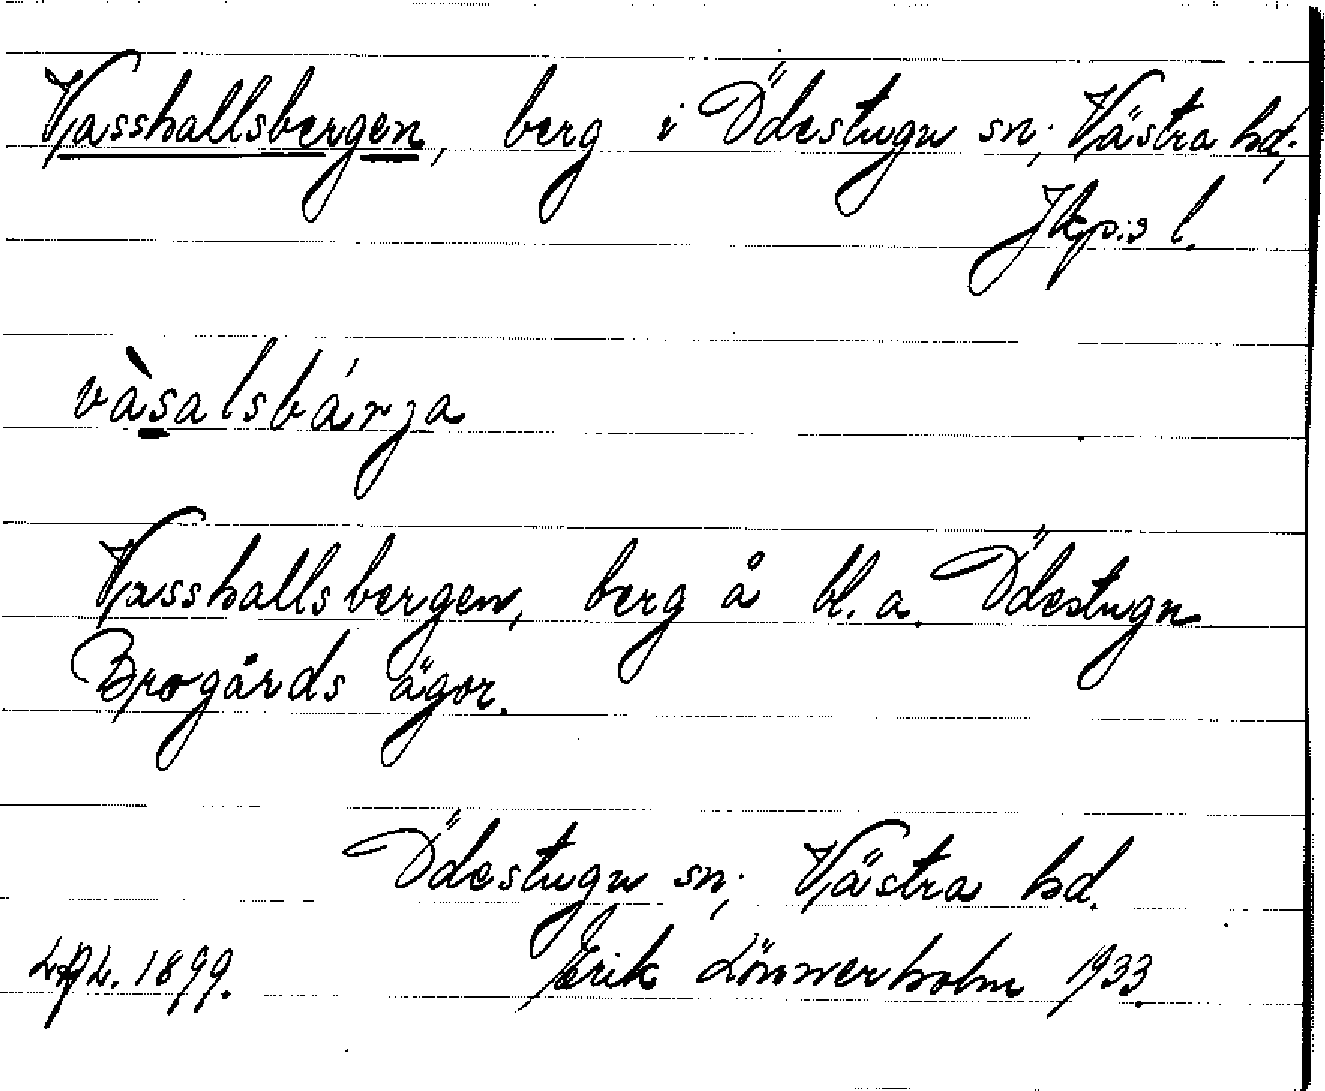 Vasshallsbergen, berg i Ödestugu sn; Västra hd;
Jkp:s l.
vàsalsbárja
Vasshallsbergen, berg å bl. a. Ödestugu
Brogårds ägor.
Ödestugu sn; Västra hd.
1899. Erik Lönnerholm 1933